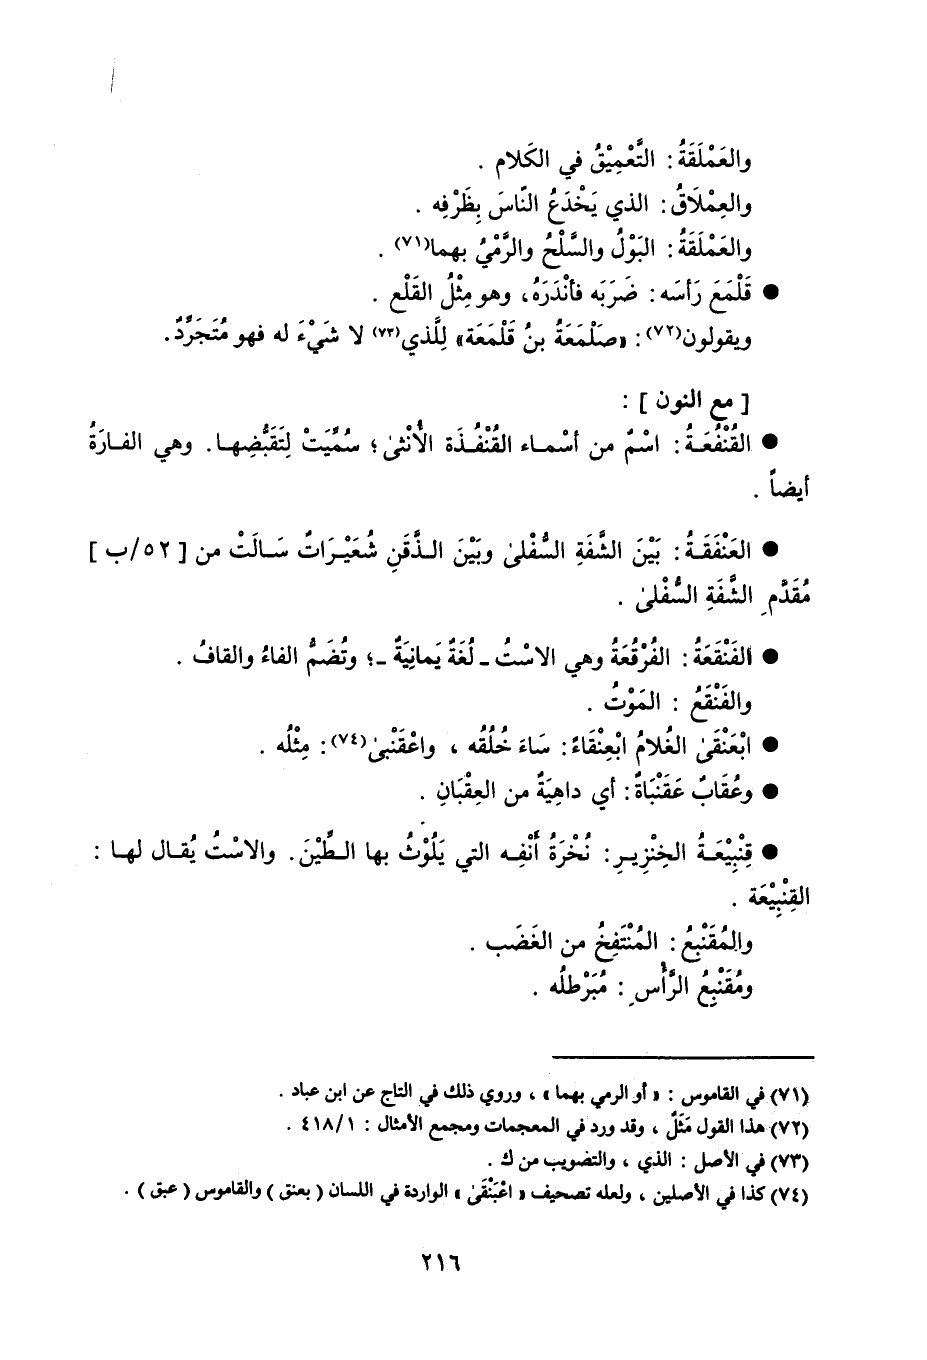 والعَمْلَقَةُ : التَّعْمِيْقُ في الكَلام .
والعِمْلَاقُ : الذي يَخْدَعُ النّاسَ بِظَرْفِه .
والعَمْلَقَةُ : البَوْلُ والسَّلْحُ والرَّمْيُ بهما(٧١) .
● قَلْمَعَ رَأسَه : ضَرَبَه فأنْدَرَهُ ، وهو مِثْلُ القَلْع .
ويقولون(٧٢) : «صَلْمَعَةُ بنُ قَلْمَعَة» لِلَّذي(٧٣) لا شَيْءَ له فهو مُتَجَرِّدٌ.
[ مع النون ] :
● القُنْفُعَـةُ : اسْمٌ من أسْمـاء القُنْفُـذَة الأُنْثىٰ ؛ سُمِّيَتْ لِتَقَبُّضِهـا. وهي الفـارَةُ
أيضاً .
● العَنْفَقَـةُ : بَيْنَ الشَّفَةِ السُّفْلىٰ وبَيْنَ الـذَّقَنِ شُعَيْـرَاتٌ سَـالَتْ من [ ٥٢/ب ]
مُقَدَّمِ الشَّفَةِ السُّفْلىٰ .
● الفَنْقَعَةُ : الفُرْقُعَةُ وهي الاسْتُ ـ لُغَةٌ يَمانِيَةٌ ـ؛ وتُضَمُّ الفاءُ والقافُ .
والفَنْقَعُ : المَوْتُ .
● ابْعَنْقَىٰ الغُلامُ ابْعِنْقَاءً : سَاءَ خُلُقُه ، واعْقَنْبىٰ(٧٤) : مِثْلُه .
● وعُقَابٌ عَقَنْبَاةٌ : أي داهِيَةٌ من العِقْبَانِ .
● قِنْبِيْعَـةُ الخِنْزِيـرِ : نُخْرَةُ أَنْفِـه التي يَلُوْثُ بها الـطِّيْنَ. والاسْتُ يُقـال لهـا :
القِنْبِيْعَة .
والمُقَنْبِعُ : المُنْتَفِخُ من الغَضَب .
ومُقَنْبِعُ الرَّأْسِ : مُبَرْطلُه .
(٧١) في القاموس : « أو الرمي بهما » ، وروي ذلك في التاج عن ابن عباد .
(٧٢) هذا القول مَثَلٌ ، وقد ورد في المعجمات ومجمع الأمثال : ٤١٨/١ .
(٧٣) في الأصل : الذي ، والتضويب من ك .
(٧٤) كذا في الأصلين ، ولعله تصحيف « اعْبَنْقَىٰ » الواردة في اللسان ( بعنق ) والقاموس ( عبق ) .
٢١٦